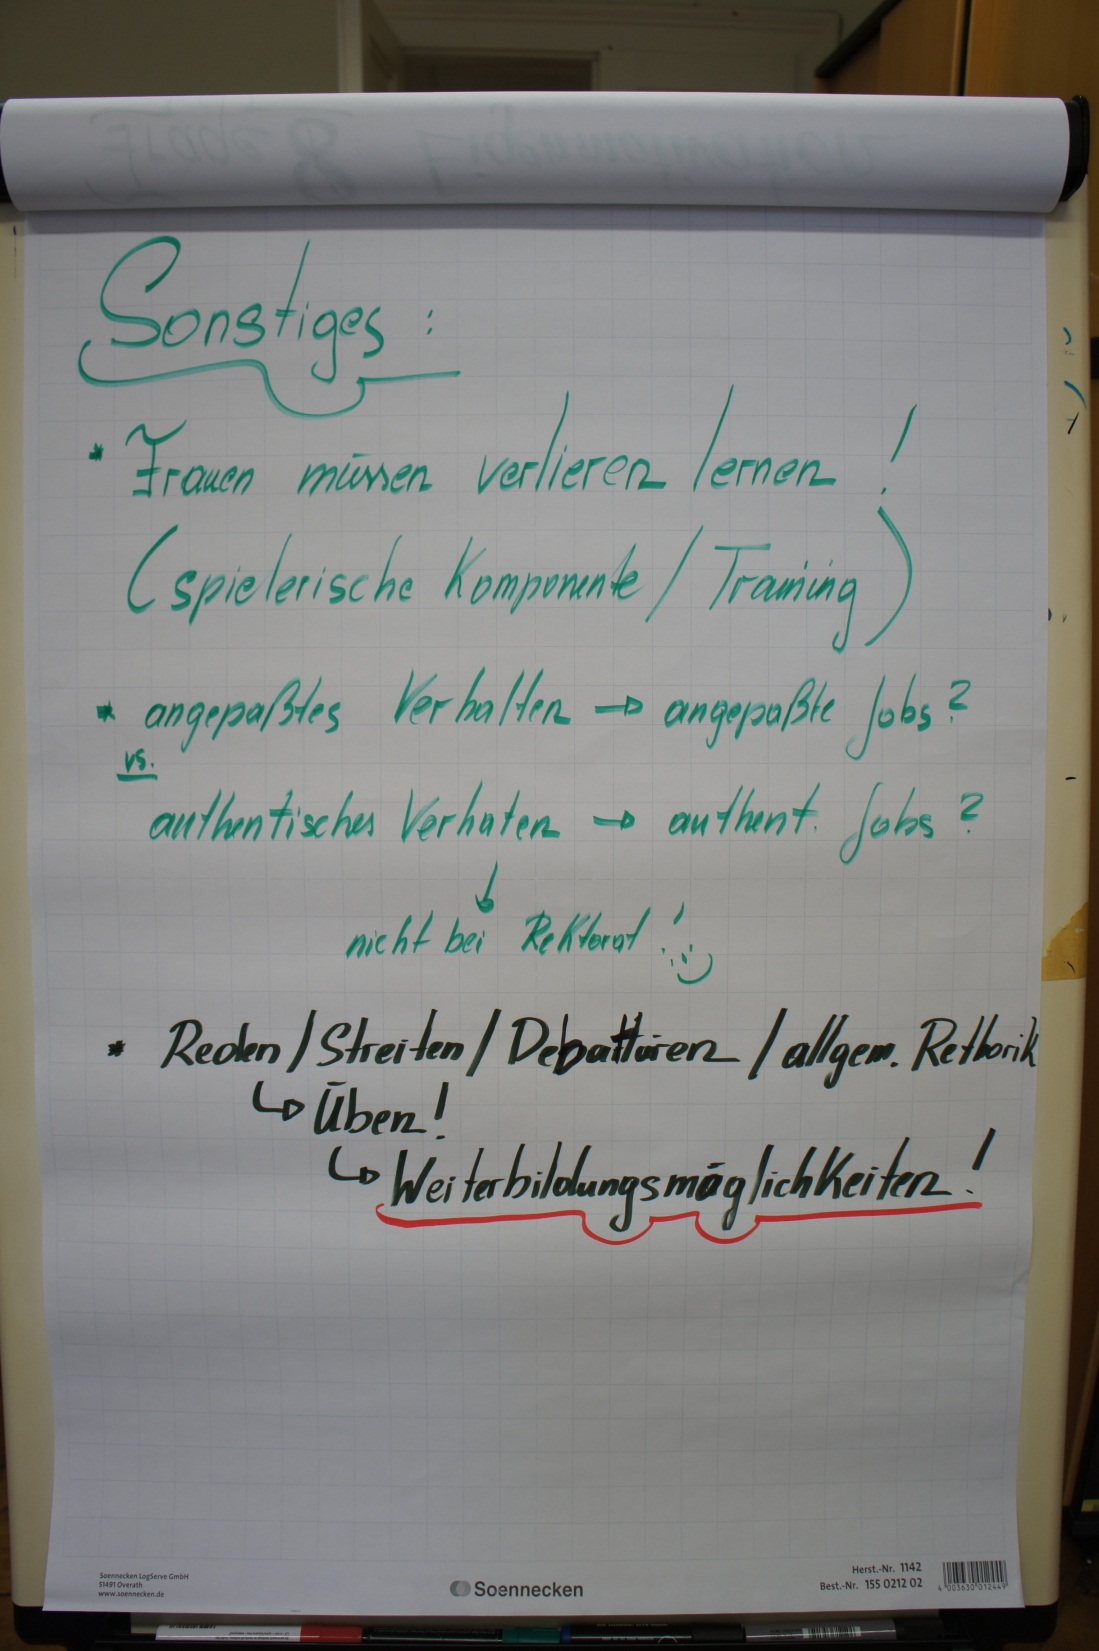 Sonstiges :
* Frauen müssen verlieren lernen !
(spielerische Komponente / Training)
* angepaßtes Verhalten → angepaßte Jobs ?
vs.
authentisches Verhaten → authent. Jobs ?
↓
nicht bei Rektorat !
* Reden / Streiten / Debattieren / allgem. Rethorik
↳ Üben !
↳ Weiterbildungsmöglichkeiten !
Soennecken LogServe GmbH
51491 Overath
www.soennecken.de
Soennecken
Herst.-Nr. 1142
Best.-Nr. 155 0212 02
4 003630 012449